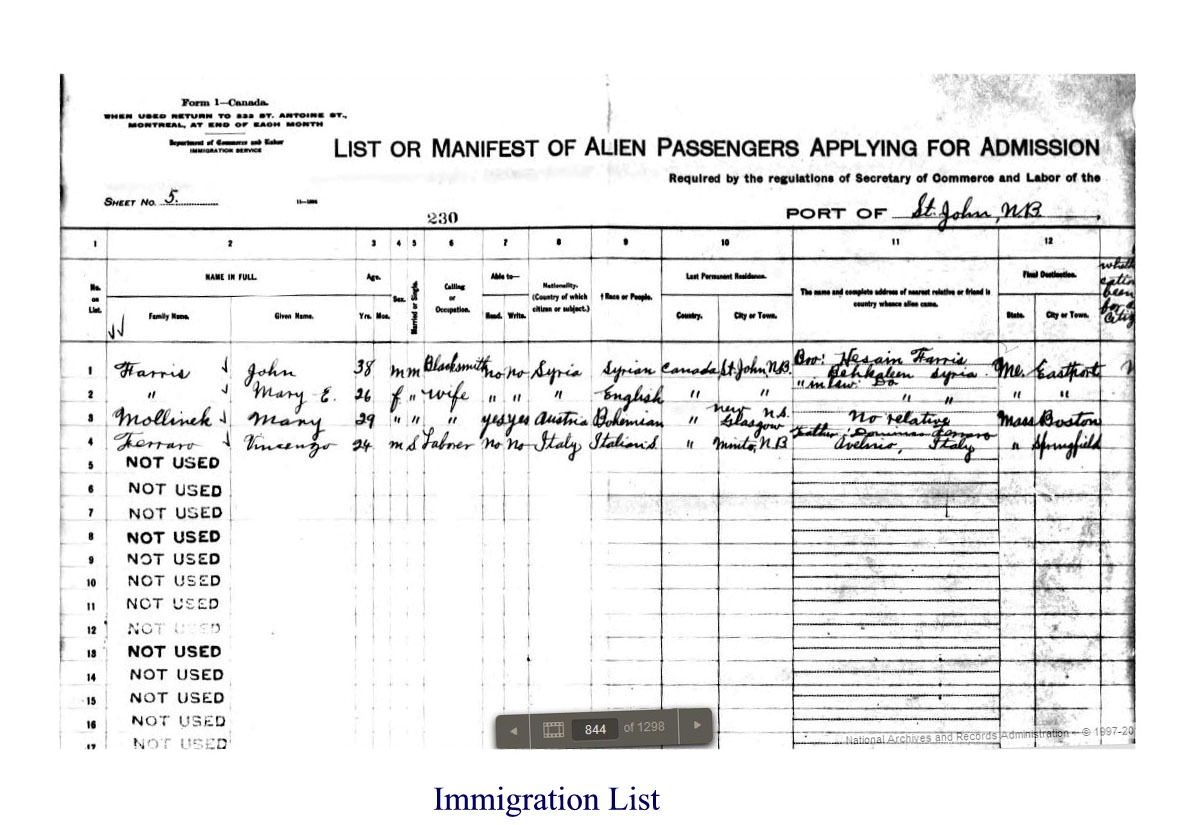 Form 1—Canada.
WHEN USED RETURN TO 333 ST. ANTOINE ST.,
MONTREAL, AT END OF EACH MONTH
Department of Commerce and Labor
IMMIGRATION SERVICE
LIST OR MANIFEST OF ALIEN PASSENGERS APPLYING FOR ADMISSION
Required by the regulations of Secretary of Commerce and Labor of the
SHEET NO. 5.
230
PORT OF St. John, N.B.,
1 2 3 4 5 6 7 8 9 10 11 12
No. on List.
NAME IN FULL.
Family Name. Given Name.
Age.
Yrs. Mos.
Sex.
Married or Single.
Calling or Occupation.
Able to—
Read. Write.
Nationality. (Country of which citizen or subject.)
† Race or People.
Last Permanent Residence.
Country. City or Town.
The name and complete address of nearest relative or friend in country whence alien came.
Final Destination.
State. City or Town.
1 Farris John 38 m m Blacksmith no no Syria Syrian Canada St. John N.B. Bro: Hesain Farris Syria Me. Eastport
2 " Mary E. 26 f " wife " " " English " " " in law: Do " " " "
3 Mollinek Mary 29 " " " yes yes Austria Bohemian " New Glasgow N.S. No relative Mass Boston
4 Ferraro Vincenzo 24 m S Labner No No Italy Italian S " Minto, N.B Father: Ferraro Avelino, Italy " Springfield
5 NOT USED
6 NOT USED
7 NOT USED
8 NOT USED
9 NOT USED
10 NOT USED
11 NOT USED
12 NOT USED
13 NOT USED
14 NOT USED
15 NOT USED
16 NOT USED
17 NOT USED
844 of 1298
National Archives and Records Administration - © 1997-20
Immigration List